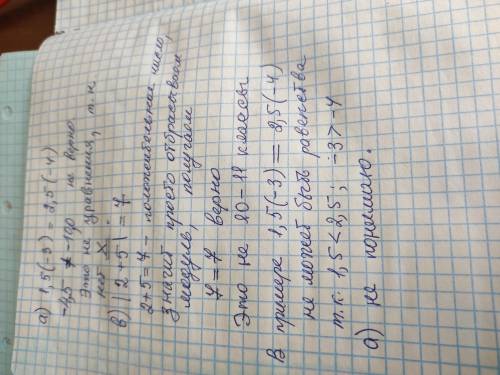 а) 1,5(-3) = 2,5(-4)
-4,5 ≠ -10,0 не верно
Это не уравнения, т.к.
нет х.
в) |2+5| = 7
2+5=7 - положительная число,
Значит просто отбрасываем
модуль, получаем
7=7 верно
Это не 10-11 классы
В примере 1,5(-3) = 2,5(-4)
не может быть равенства
т.к. 1,5<2,5; -3>-4
а) не понимаю.